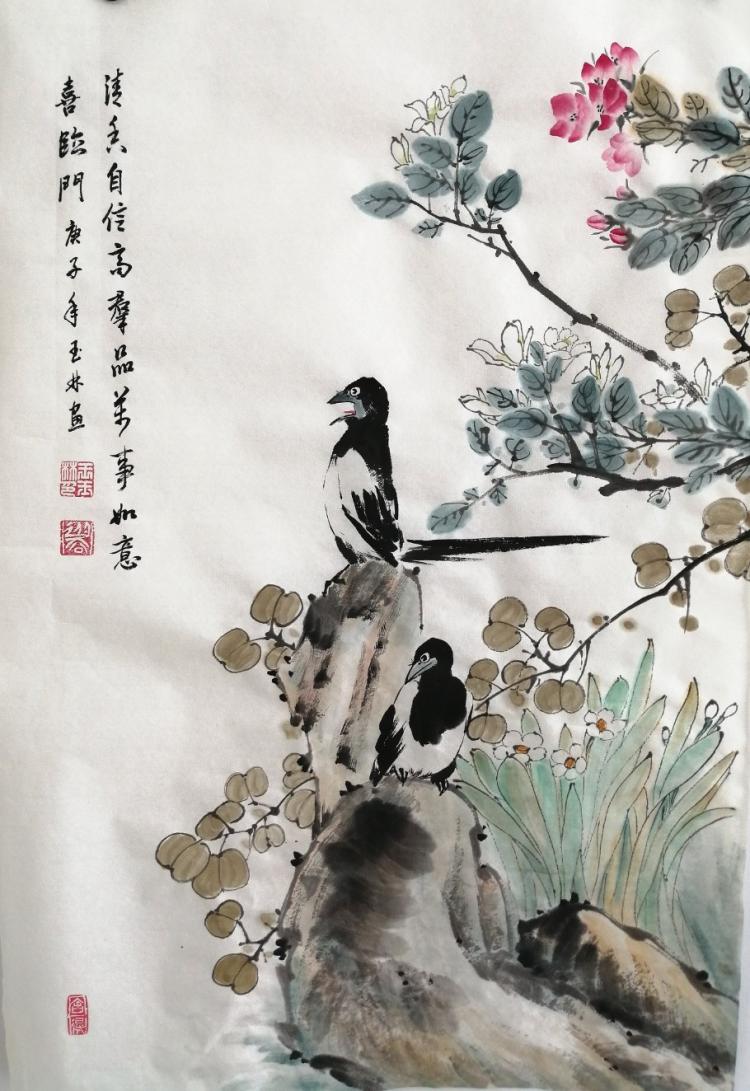 清香自信高羣品萬事如意
喜臨門 庚子年玉林畫